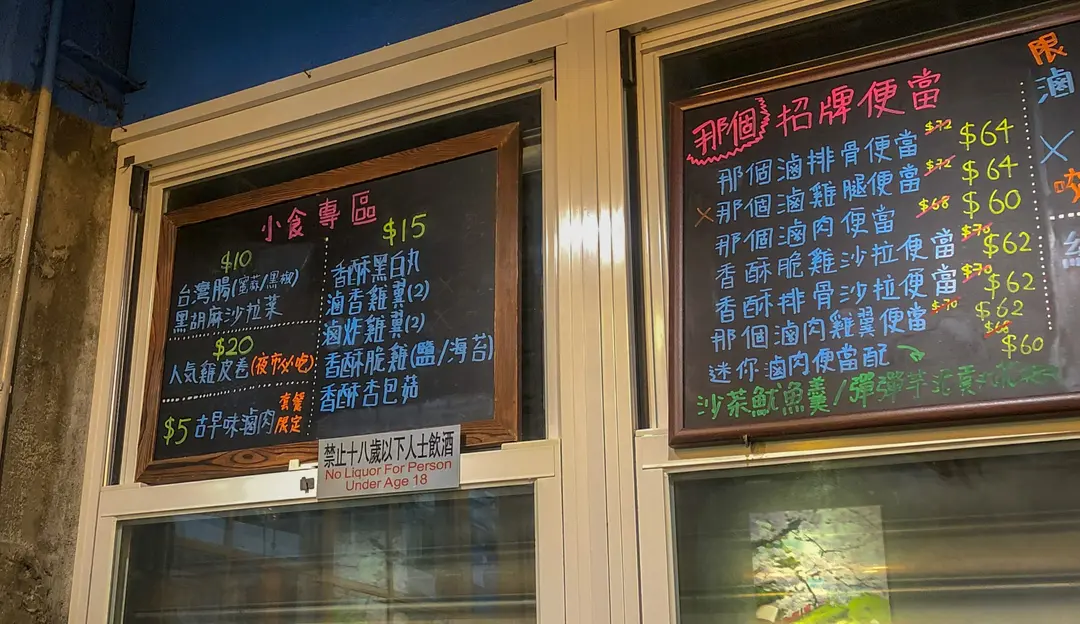 小食專區
$10
台灣腸(蜜蒜/黑椒)
黑胡麻沙拉菜
$20
人気雞皮卷(夜市必吃)
$5 古早味滷肉 套餐限定
$15
香酥黑白丸
滷香雞翼(2)
滷炸雞翼(2)
香酥脆雞(鹽/海苔)
香酥杏包菇
禁止十八歲以下人士飲酒
No Liquor For Person
Under Age 18
那個 招牌便當
那個滷排骨便當 $72 $64
×那個滷雞腿便當 $72 $64
那個滷肉便當 $68 $60
香酥脆雞沙拉便當 $70 $62
香酥排骨沙拉便當 $70 $62
那個滷肉雞翼便當 $70 $62
迷你滷肉便當配 $68 $60
沙茶魷魚羹/彈彈羊
限
滷
×